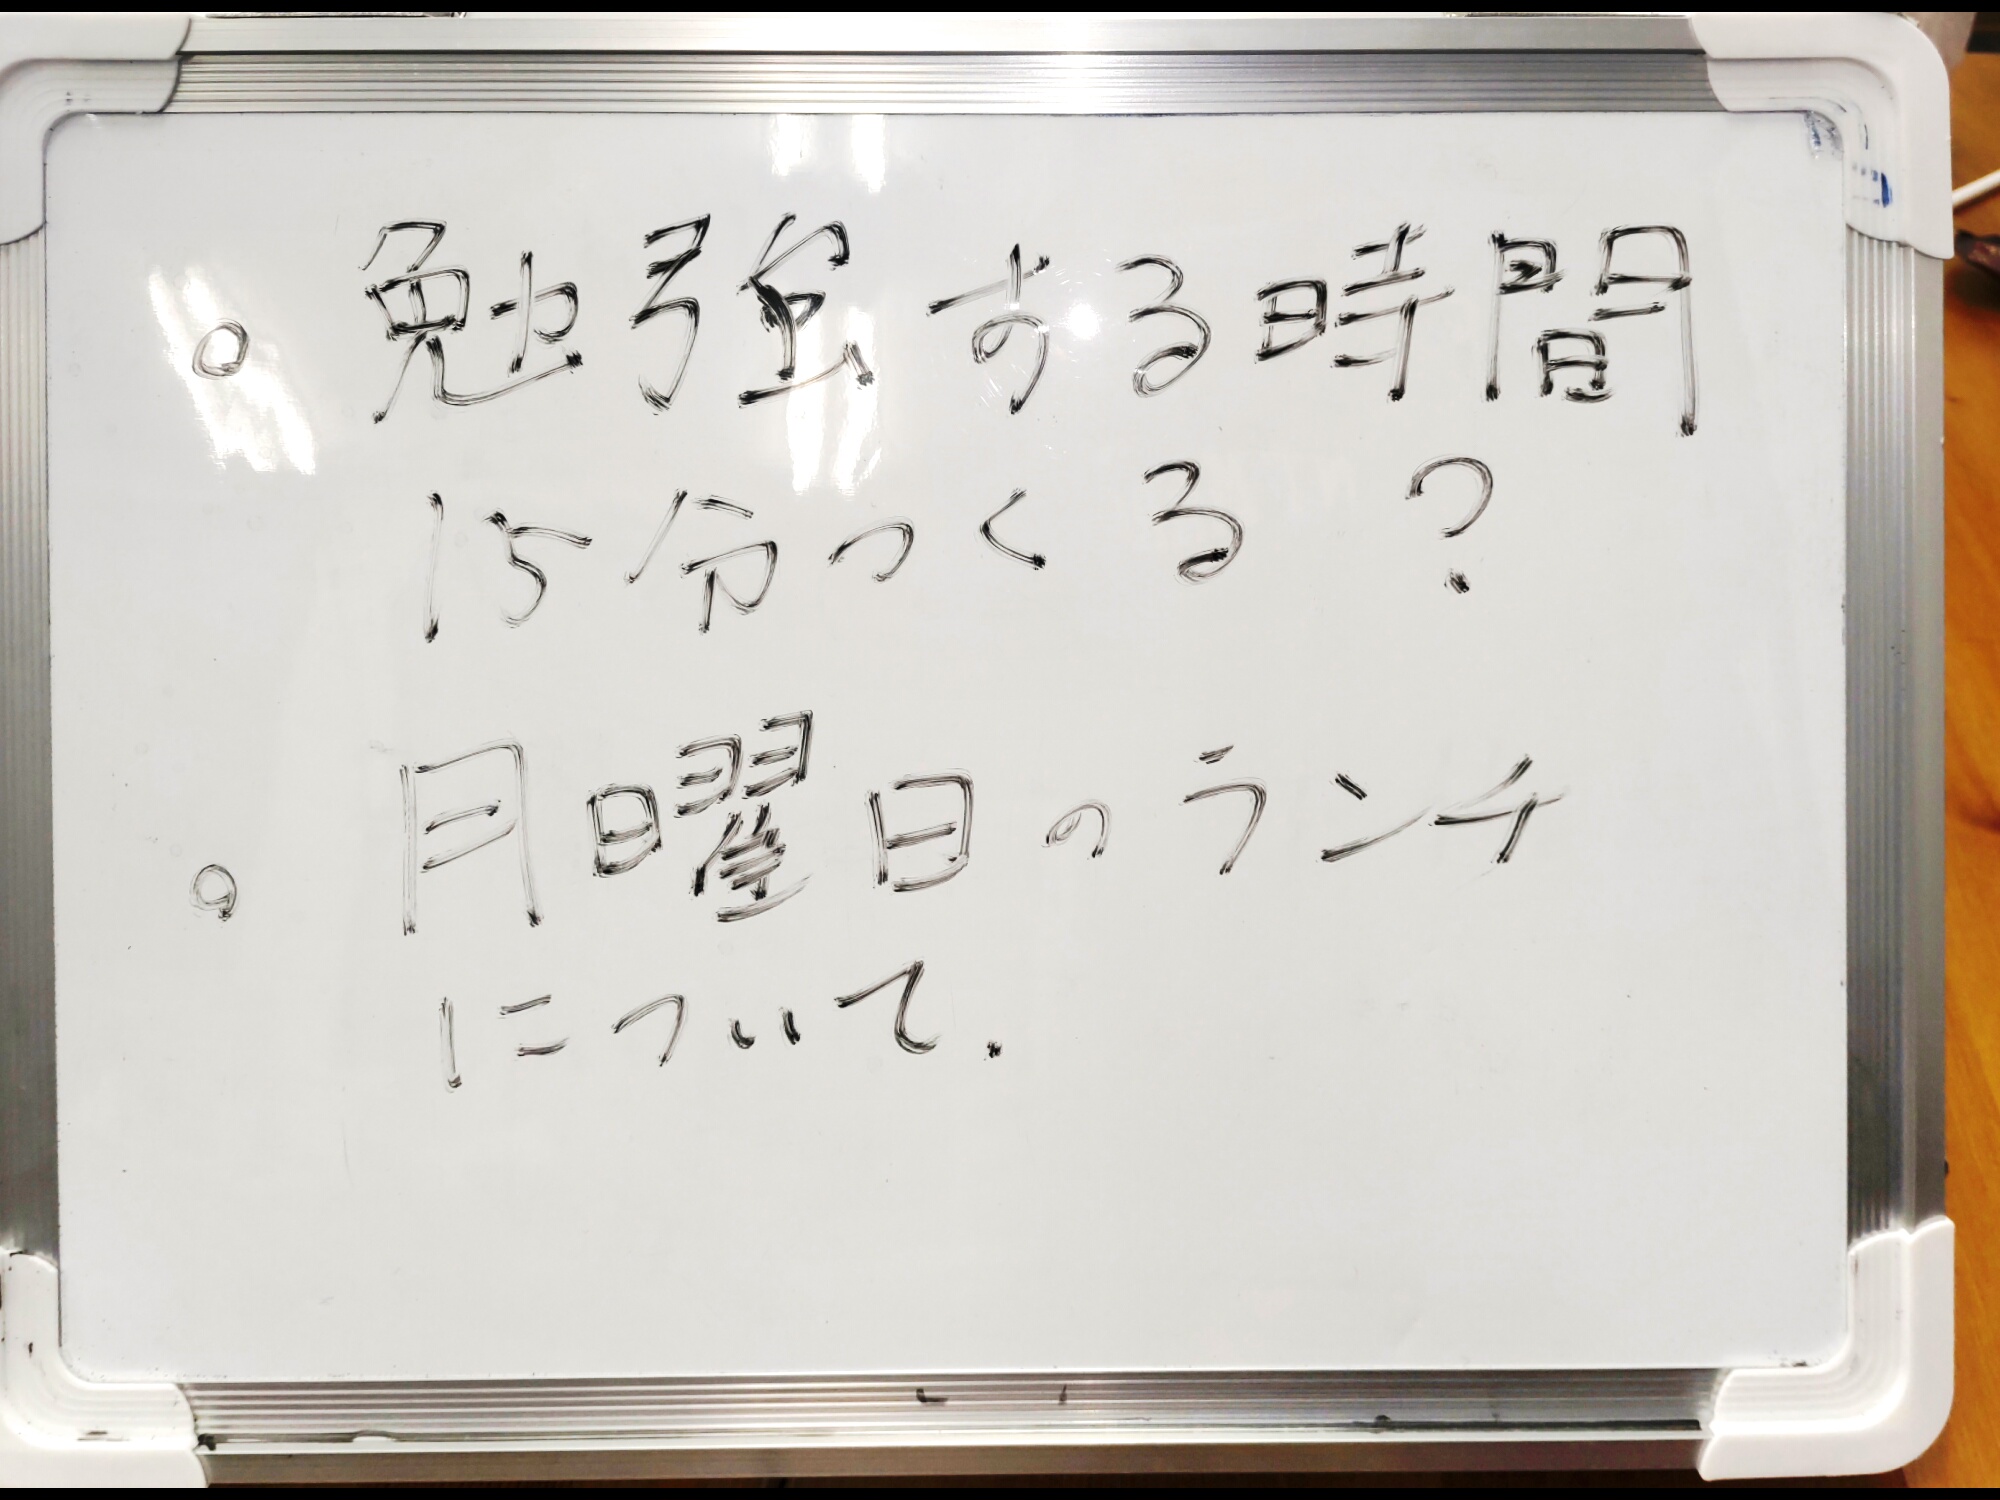 。勉強する時間
15分つくる?
。月曜日のランチ
について.